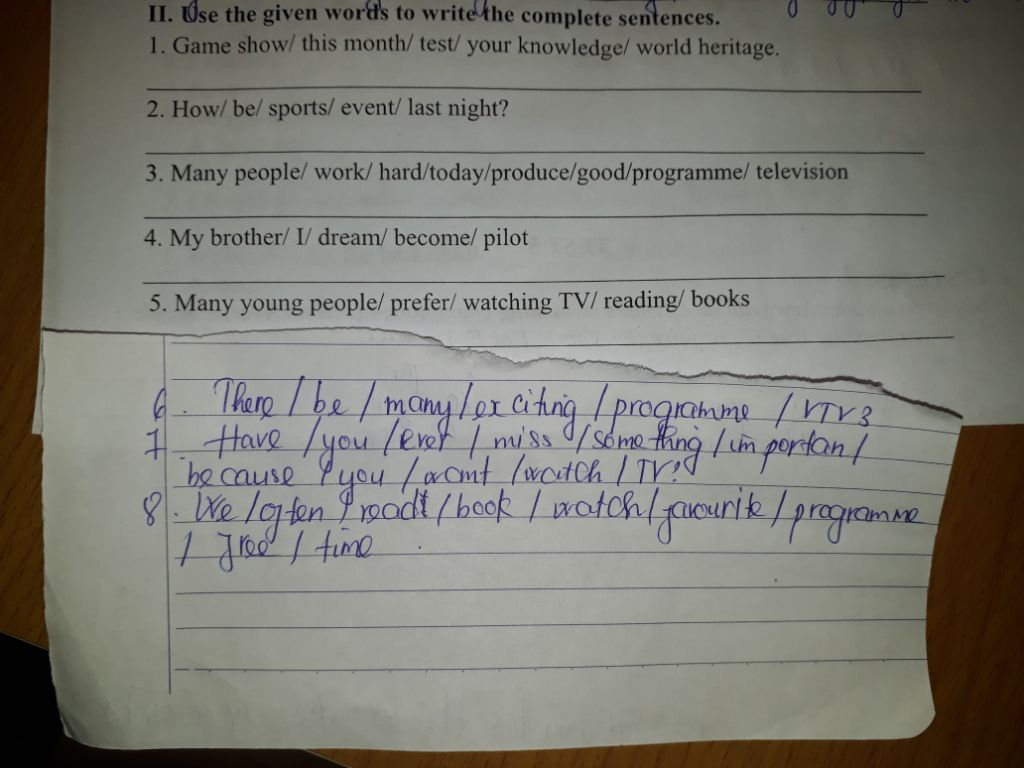 II. Use the given words to write the complete sentences.
1. Game show/ this month/ test/ your knowledge/ world heritage.
2. How/ be/ sports/ event/ last night?
3. Many people/ work/ hard/today/produce/good/programme/ television
4. My brother/ I/ dream/ become/ pilot
5. Many young people/ prefer/ watching TV/ reading/ books
6. There / be / many / exciting / programme / VTV3
7. Have / you / ever / miss / something / importan /
because / you / want / watch / TV?
8. We / often / read / book / watch / favourite / programme
/ free / time .